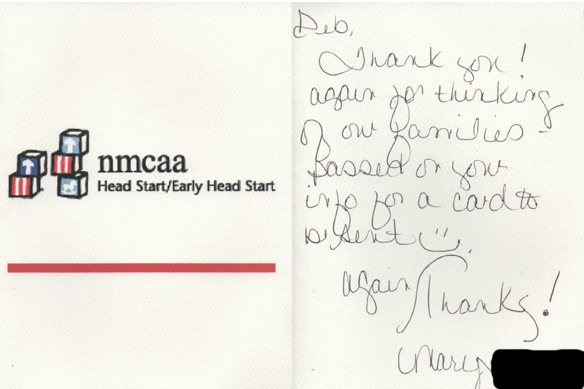 nmcaa
Head Start/Early Head Start
Deb,
Thank you!
again for thinking
of our families -
Passed on your
info for a card to
be sent
again Thanks!
Mary